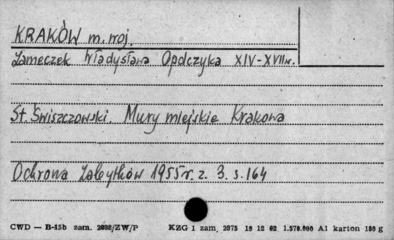 KRAKÓW m. woj.
Zameczek Władysława Opolczyka XIV-XVII w.
St. Świszczowski. Mury miejskie Krakowa
Ochrona Zabytków 1955 r. z. 3. s. 164
CWD — B-15b zam. 2088/ZW/P KZG 1 zam. 2275 18 12 62 1.570.000 A1 karton 180 g